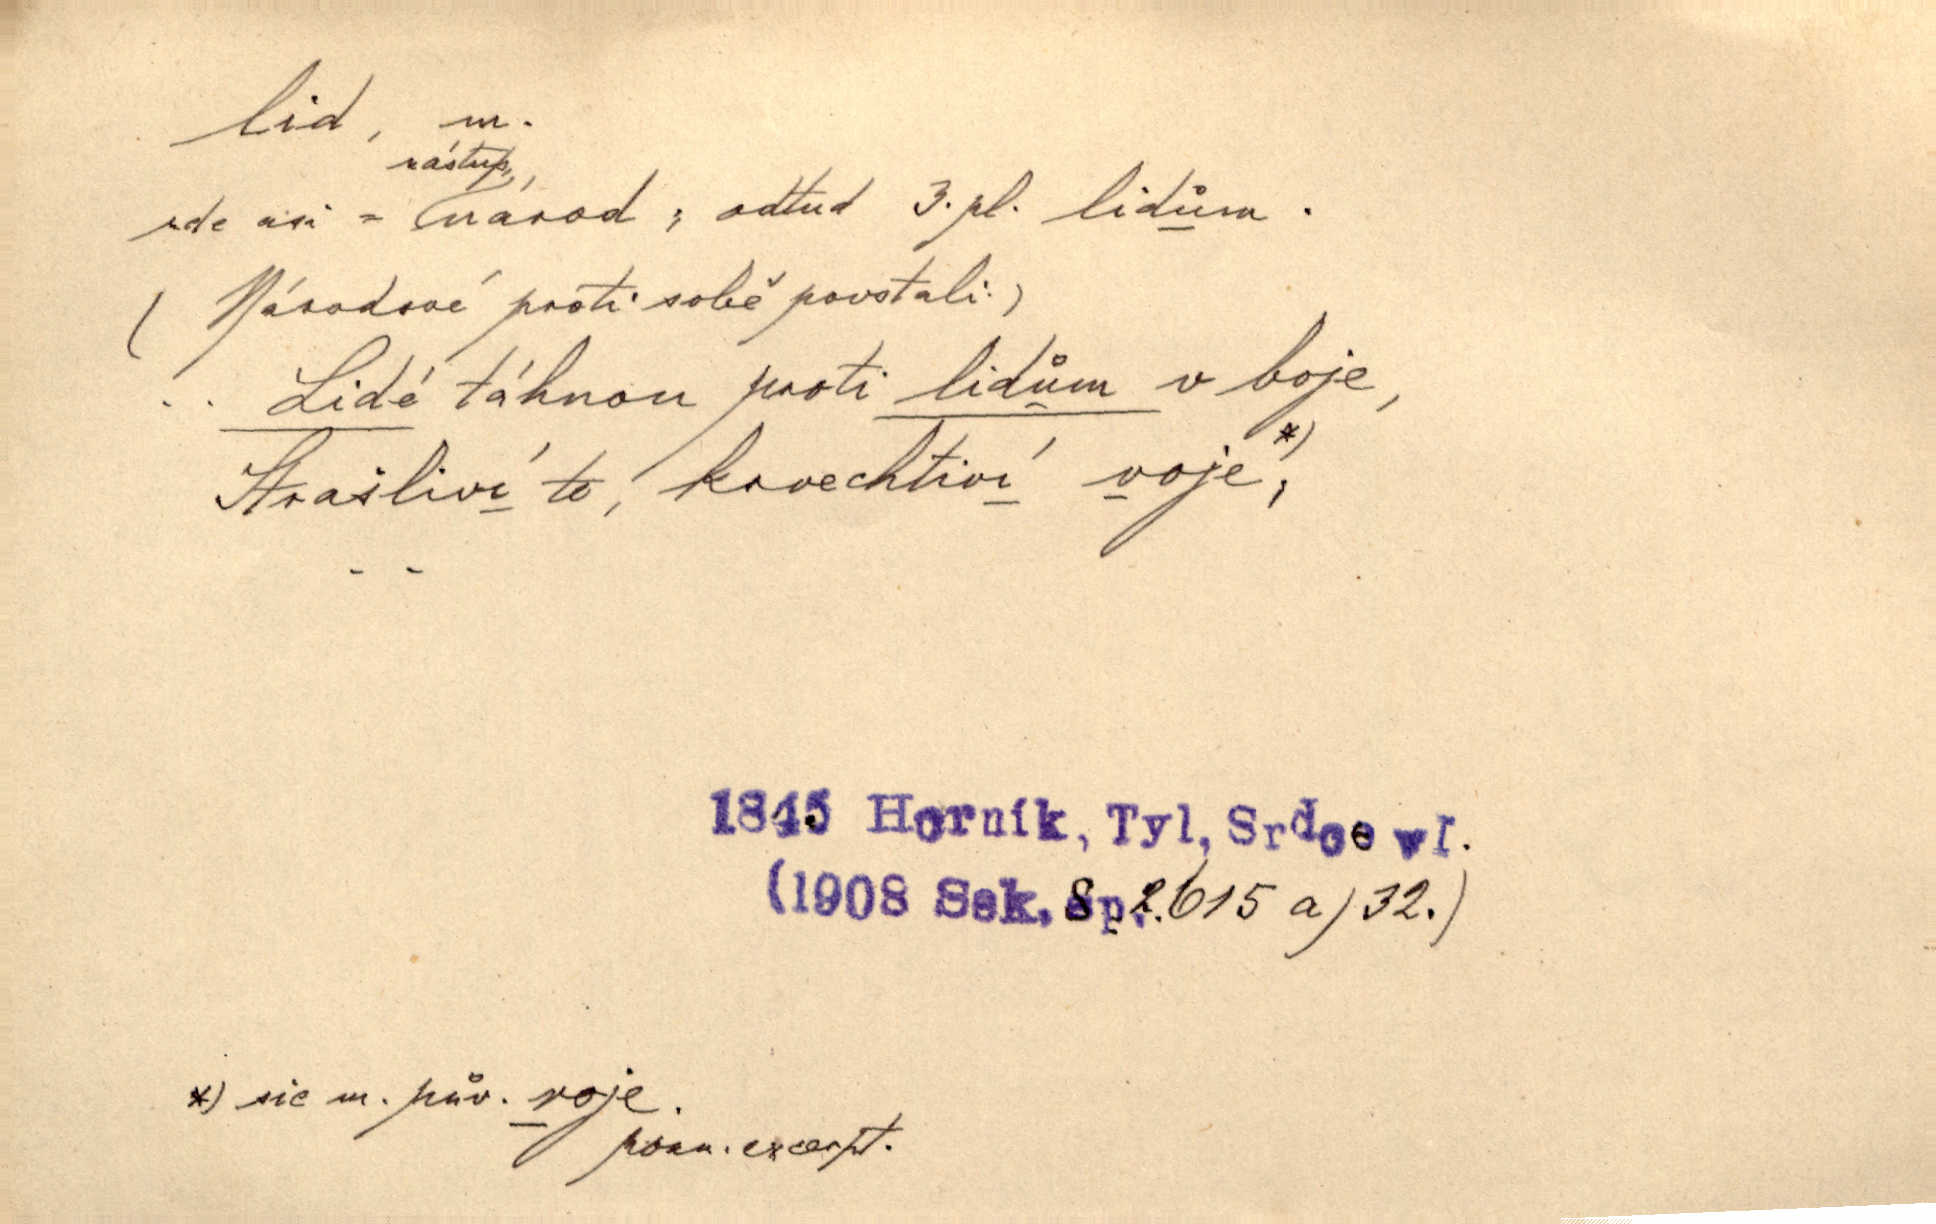 lid, m.
zástup,
zde asi = národ; odtud 3. pl. lidům.
(Národové proti sobě povstali.)
.. Lidé táhnou proti lidům v boje,
Strašliví to, krvechtiví voje*);
- -
1845 Horník, Tyl, Srdce vl.
(1908 Sek. Sp. 2615 a) 32.)
*) sic m. pův. roje.
pozn. excerpt.